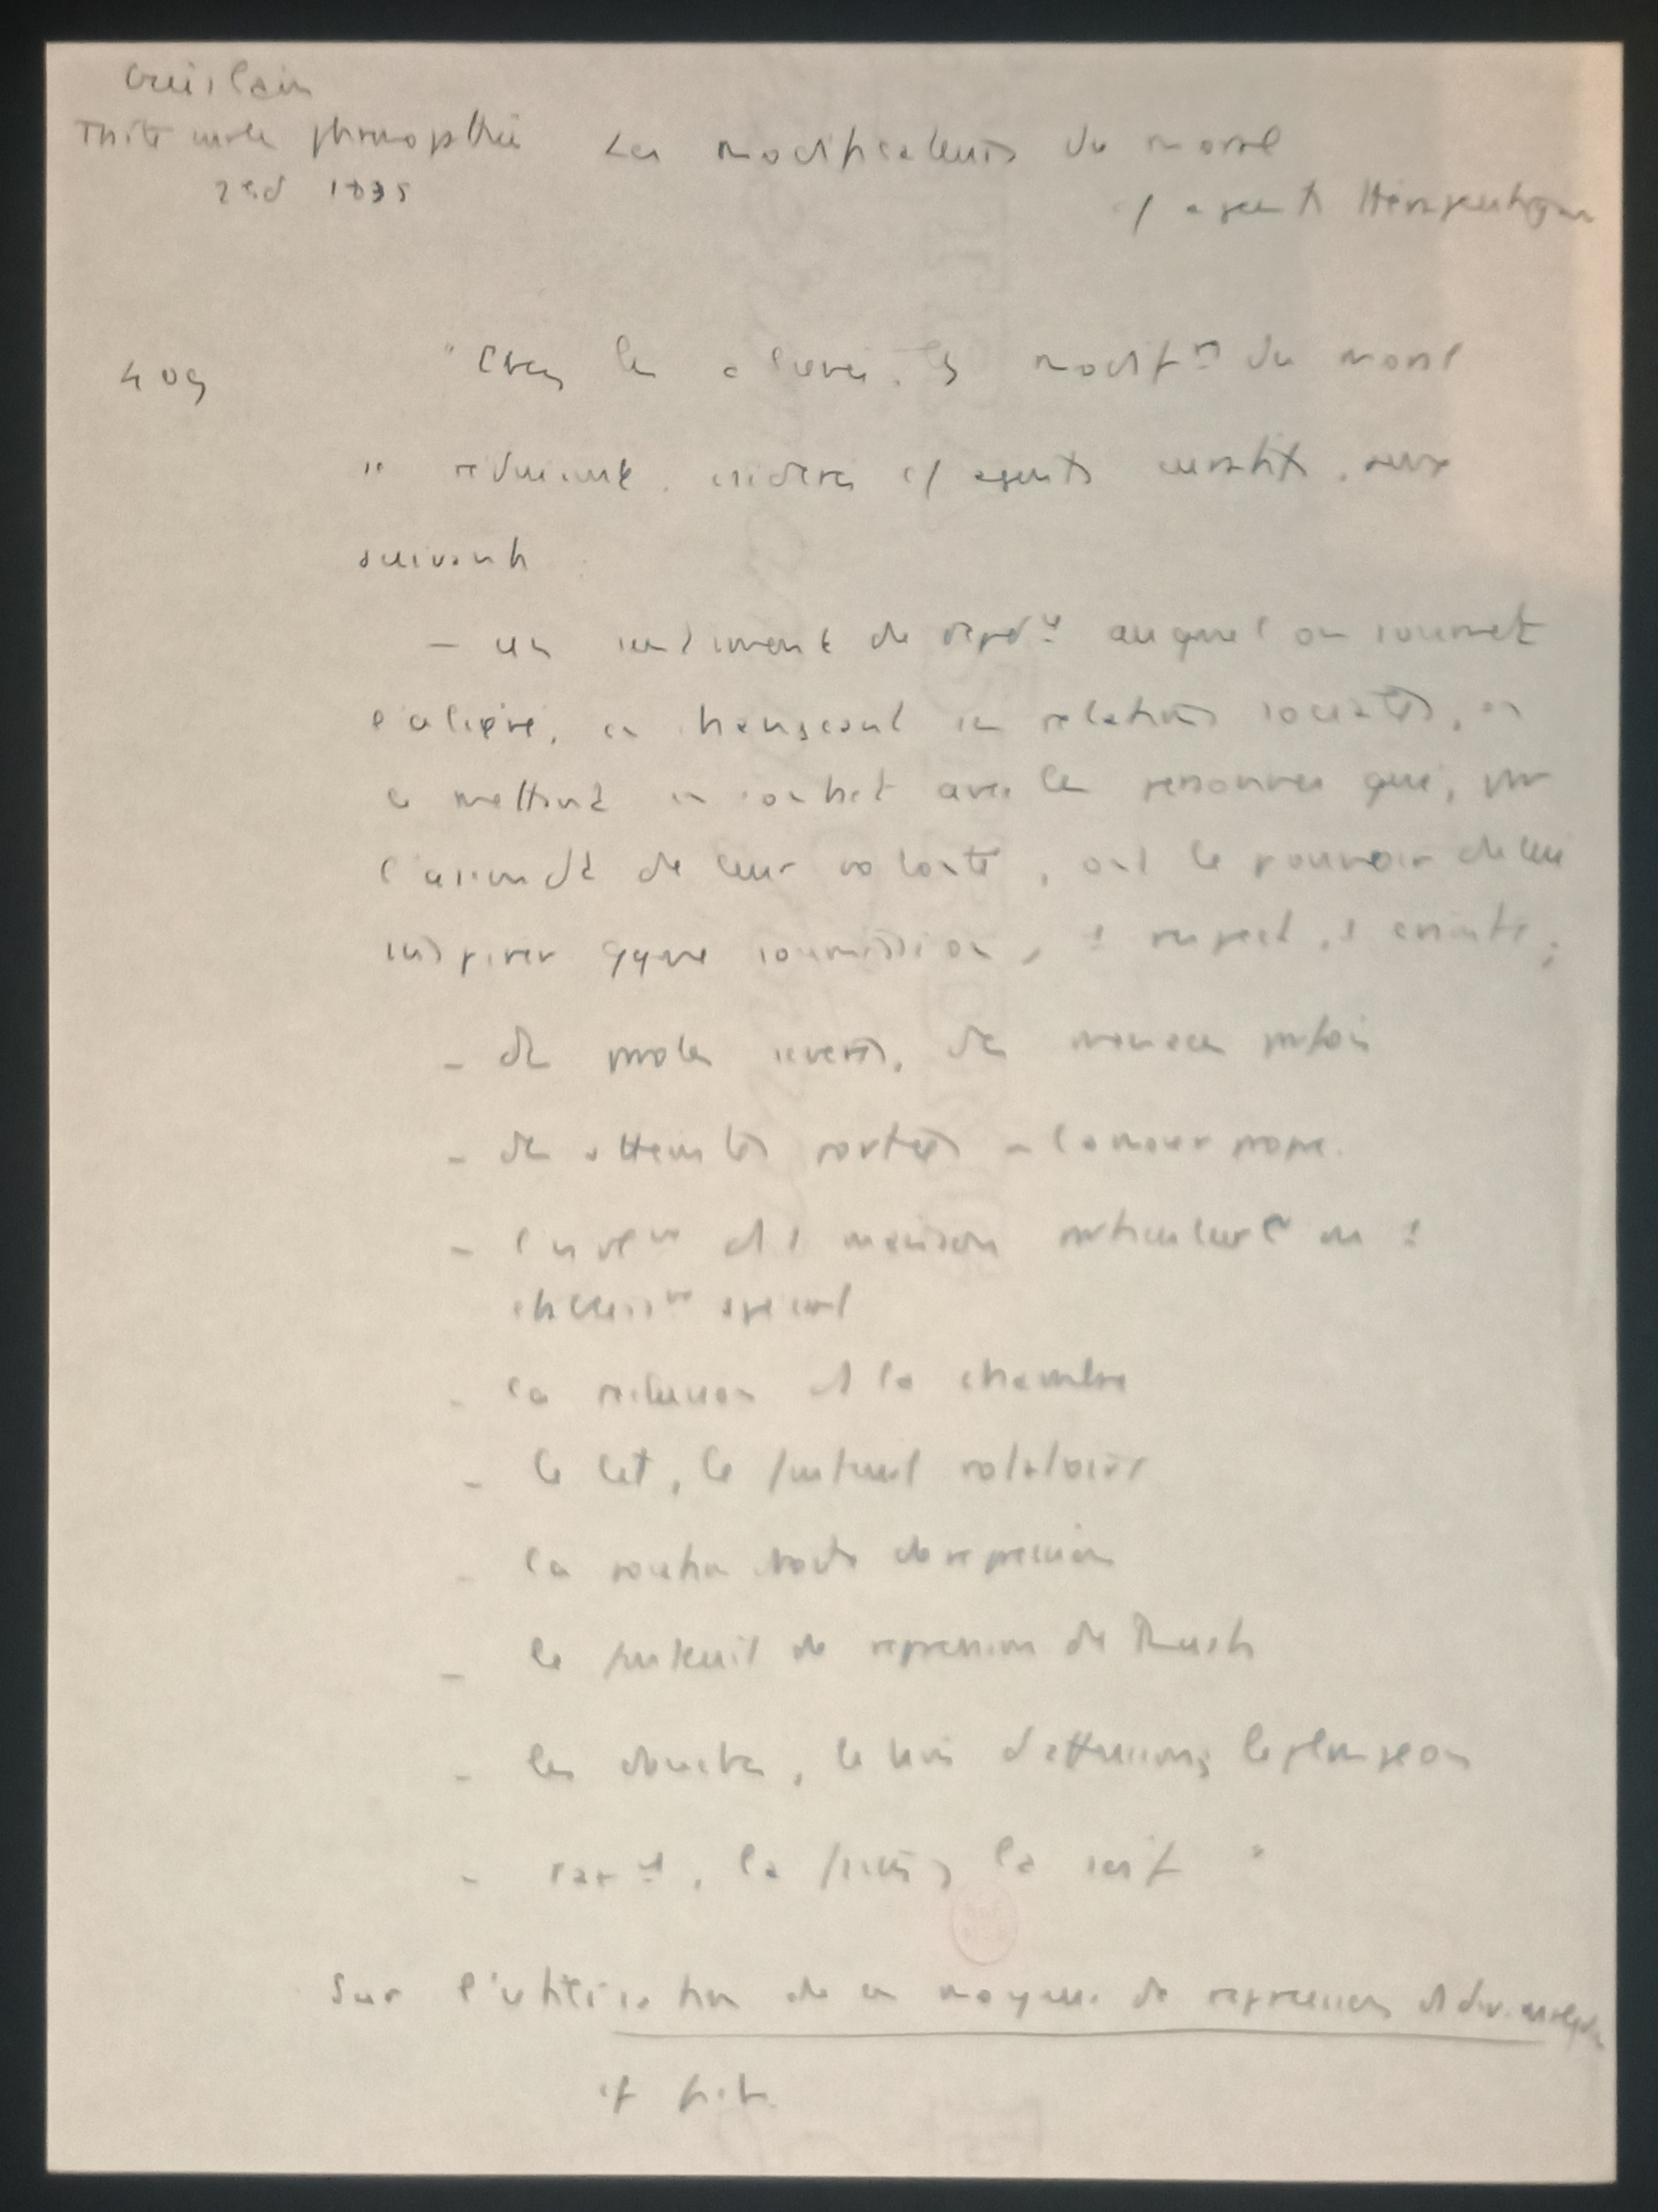 Guislain
Traité sur les phrénopathies
2e éd 1835
Les modificateurs du moral
c/ agents thérapeutiques
409
"Chez les aliénés, les modif^rs du moral
" réduisent, considérés c/ agents curatifs, aux
suivants :
— un sentiment de dépd^ce auquel on soumet
l'aliéné, en changeant ses relations sociales, en
le mettant en contact avec les personnes qui, par
l'ascendt de leur volonté, ont le pouvoir de lui
inspirer qque soumission, 1 respect, 1 crainte ;
- des paroles sévères, des menaces parfois
- des atteintes portées à l'amour propre.
- l'envoi ds 1 maison particulière ou 1
établiss^nt spécial
- la réclusion ds la chambre
- le lit, le fauteuil rotatoire
- la de répression
- le fauteuil de répression de Rush
- les douches, le bain d'affusions, le plongeon
- rar^nt, la faim, la soif "
Sur l'utilisation de ces moyens de répression ds
cf fiche